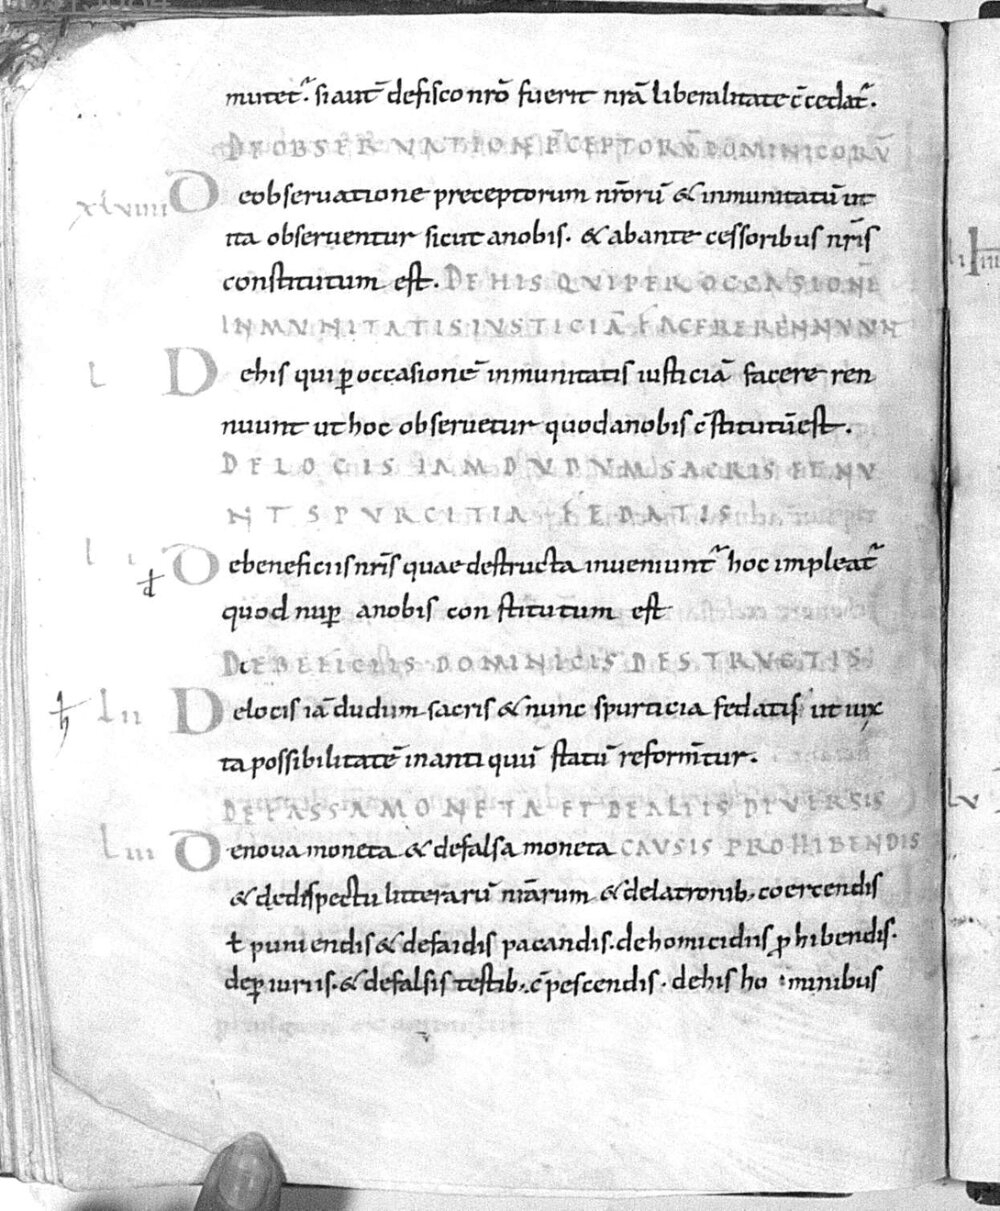 mutet᷑. si aut̄ de fisco nr̄o fuerit nr̄a liberalitate c̄cedat᷑.
DE OBSERVATIONE P̄CEPTORV̄ DOMINICORV̄
xlviiii De obseruatione preceptorum nr̄orū & inmunitatū ut
ita obseruentur sicut a nobis. & ab antecessoribus nr̄is
constitutum est. DE HIS QVI PER OCCANSIONE
INMVNITATIS IVSTICIĀ FACERE RENNVVN
L De his qui ꝑ occasionē inmunitatis iusticiā facere ren
nuunt ut hoc obseruetur quod a nobis c̄stitutū est.
DE LOCIS IAM DVDVM SACRIS ET NV
NT SPVRCITIA FEDATIS
L i De beneficiis nr̄is quae destructa inueniunt᷑ hoc impleat᷑
đ
quod nuꝑ a nobis constitutum est
DE BEFICIIS DOMINICIS DESTRVCTIS
ħ L ii De locis iā dudum sacris & nunc spurticia fedatis ut iux
ta possibilitatē in antiquū statū reform̄tur.
DE FASSA MONETA ET DE ALIIS DIVERSIS
L iii De noua moneta & de falsa moneta CAVSIS PROHIBENDIS
& de dispectu litterarū nr̄arum & de latronib; coercendis
ł puniendis & de faidis pacandis. de homicidiis ꝓhibendis.
de ꝑiuriis. & de falsis testib; c̄pescendis. de his hominibus
L iiii
L v